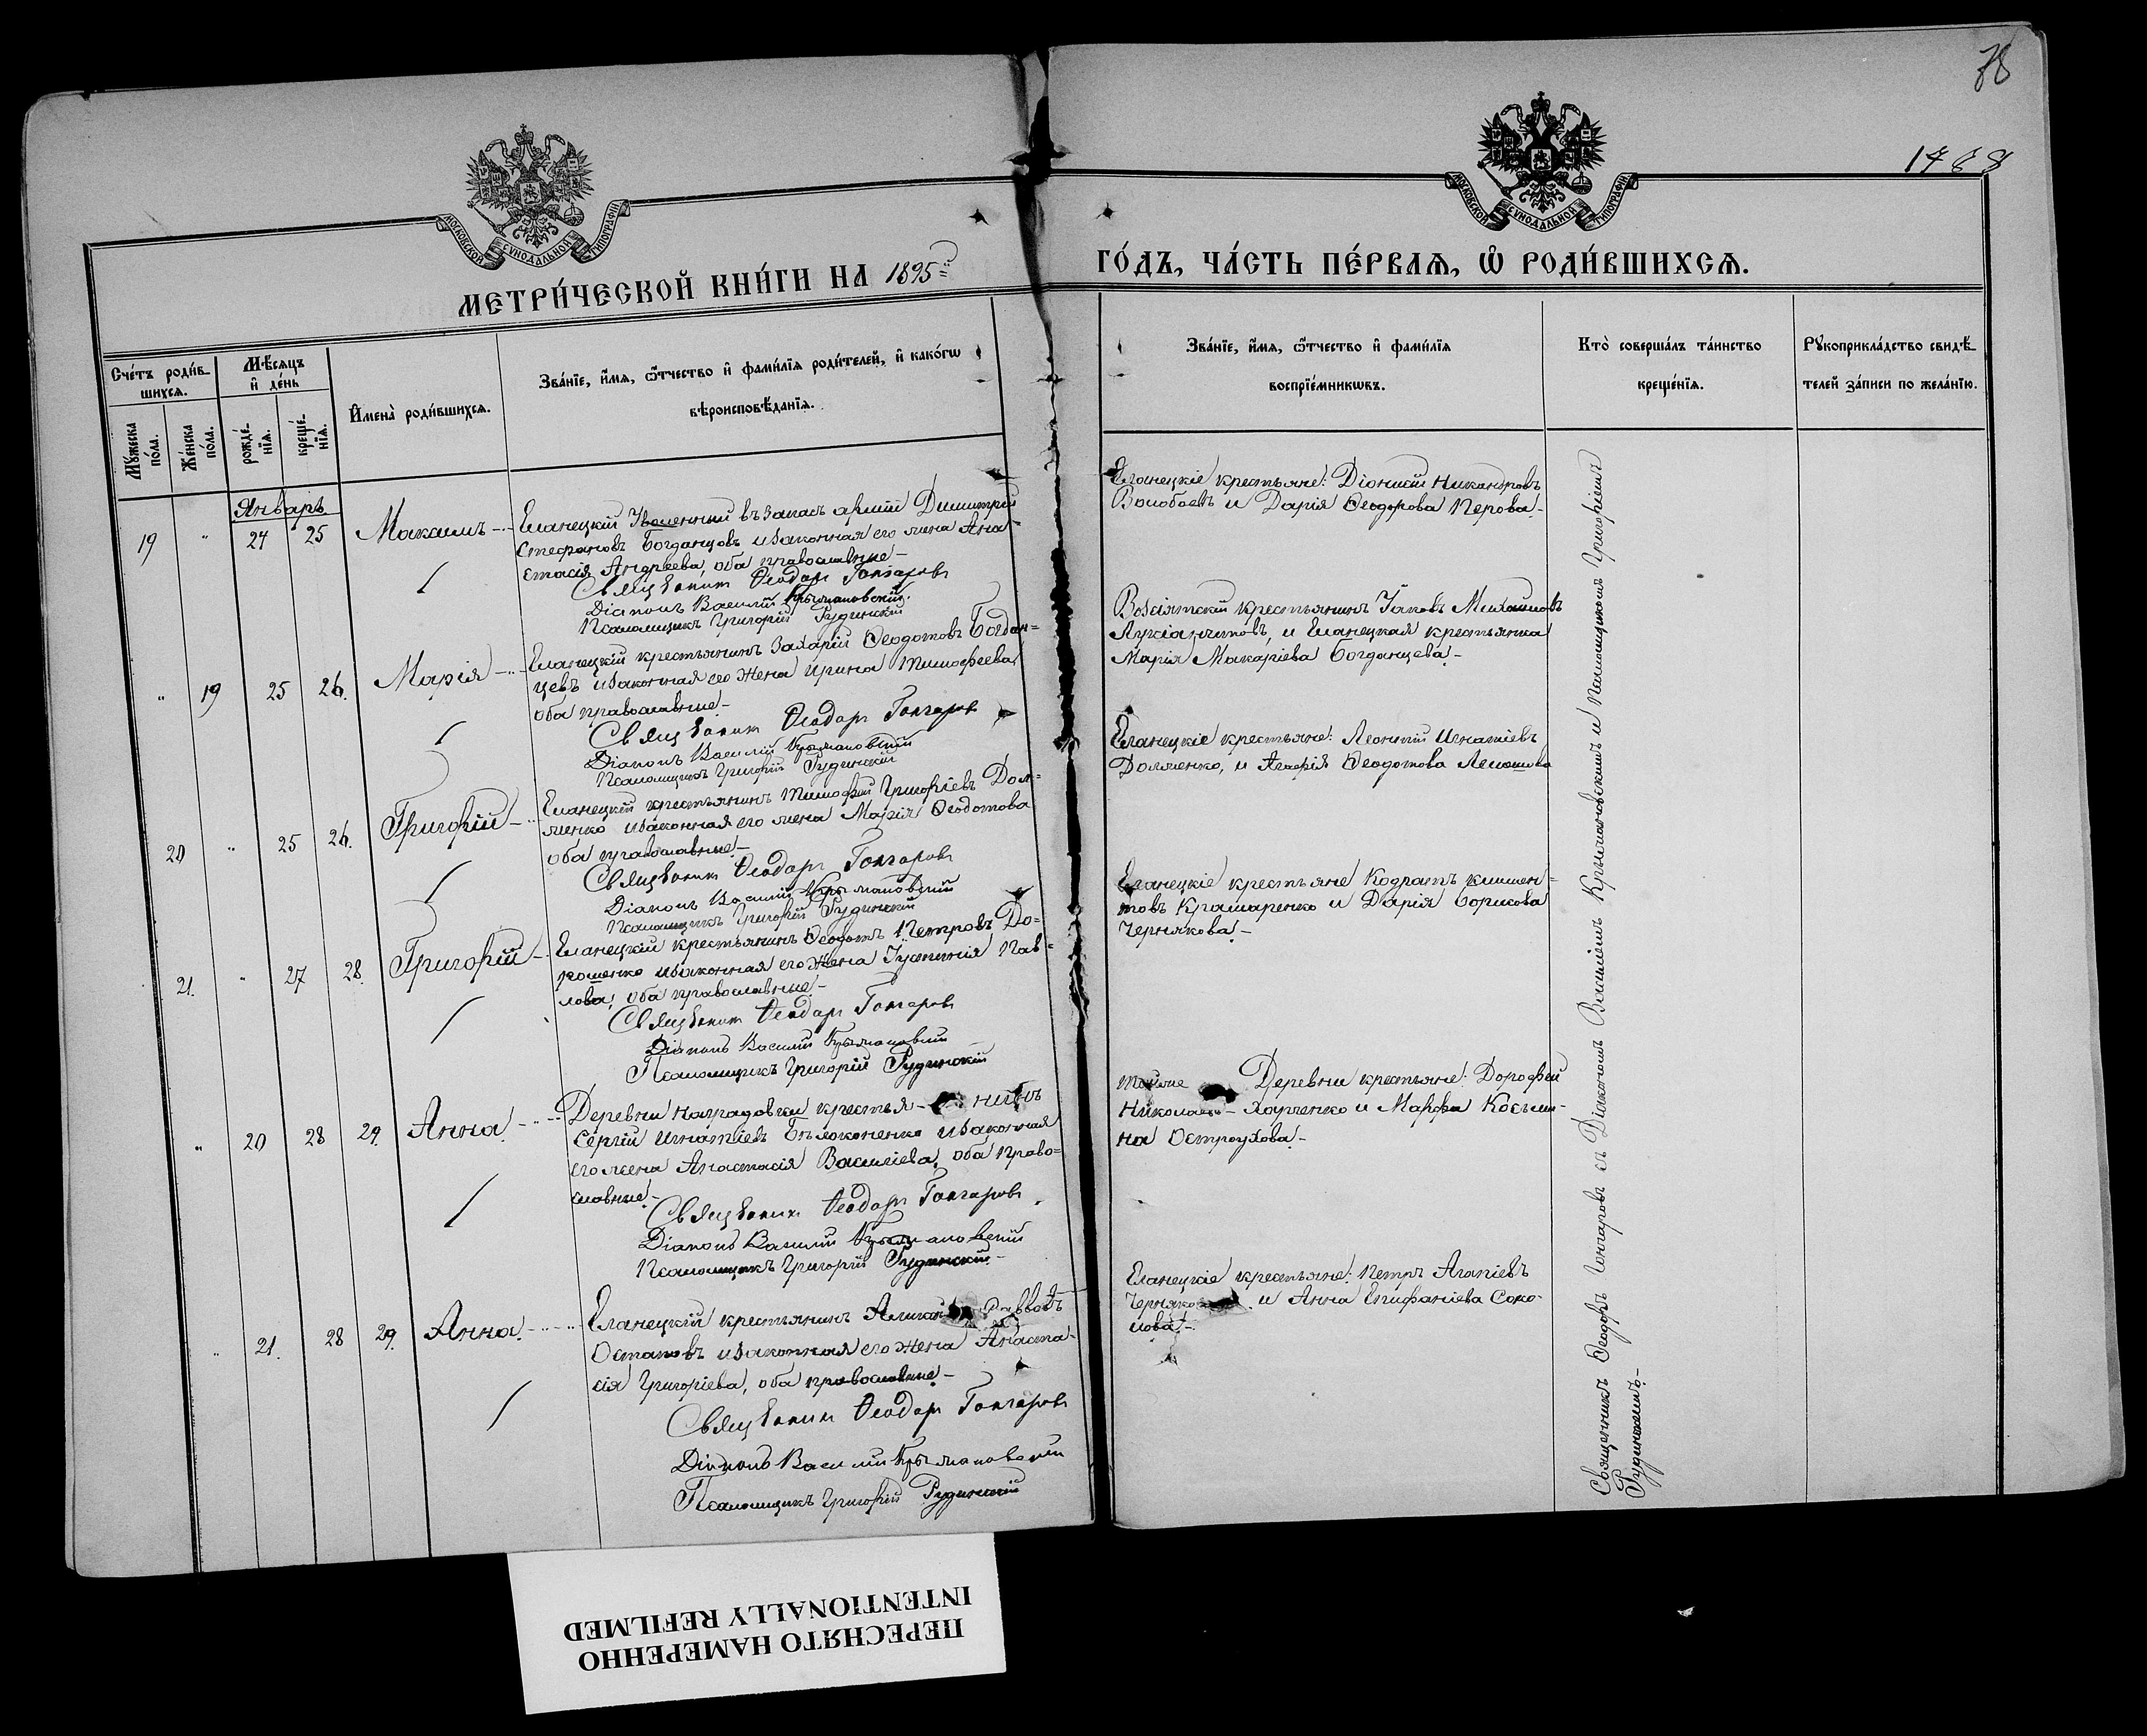 78
1488
МОСКОВСКОЙ СѴНОДАЛЬНОЙ ТИПОГРАФІИ
МОСКОВСКОЙ СѴНОДАЛЬНОЙ ТИПОГРАФІИ
МЕТРИ́ЧЕСКОЙ КНИ́ГИ НА 1895=й
ГО́ДЪ, ЧА́СТЬ ПЕ́РВАѦ, Ѽ РОДИ́ВШИХСѦ.
Сче́тъ роди́в-
шихсѧ.
Мꙋ́жеска по́ла.
Же́нска по́ла.
Мѣ́сѧцъ
и҆ де́нь
рожде́-нїѧ.
креще́-нїѧ.
И҆мена̀ роди́вшихсѧ.
Зва́нїе, и҆́мѧ, ѻ҆́тчество и҆ фами́лїѧ роди́телей, и҆ како́гѡ
вѣроисповѣ́данїѧ.
Зва́нїе, и҆́мѧ, ѻ҆́тчество и҆ фами́лїѧ
воспрїе́мникѡвъ.
Кто̀ соверша́лъ та́инство
креще́нїѧ.
Рꙋкоприкла́дство свидѣ́-
телей за́писи по жела́нїю.
Январь
19 " 24 25 Максимъ
Еланецкій Уволенный въ запасъ арміи Димитрій
Стефановъ Богданцовъ и законная его жена Ана-
стасія Андреева, оба православные
Священник Ѳеодоръ Гончаровъ
Діаконъ Василій Крыжановскій
Псаломщикъ Григорій Гудинскій
Еланецкіе крестьяне: Діонисій Никандровъ
Волобоевъ и Дарія Ѳеодорова Перова
" 19 25 26. Марія
Еланецкій крестьянинъ Захарій Ѳеодотовъ Богдан-
цевъ и законная его жена Ирина Тимоѳеева
оба православные
Священник Ѳеодоръ Гончаровъ
Діаконъ Василій Крыжановскій
Псаломщикъ Григорій Гудинскій
крестьянинъ Іаковъ
и Еланецкая крестьянка
Марія Макаріева Богданцева
20 " 25 26. Григорій
Еланецкій крестьянинъ Тимоѳей Григоріевъ Дол-
женко и законная его жена Марія Ѳеодотова
оба православные
Священник Ѳеодоръ Гончаровъ
Діаконъ Василій Крыжановскій
Псаломщикъ Григорій Гудинскій
Еланецкіе крестьяне: Леонтій Игнатіевъ
Долженко, и Агафія Ѳеодотова
21. " 27 28. Григорій
Еланецкій крестьянинъ Ѳеодотъ Петровъ До-
рошенко и законная его жена Іустинія Пав-
лова, оба православные
Священник Ѳеодоръ Гончаровъ
Діаконъ Василій Крыжановскій
Псаломщикъ Григорій Гудинскій
Еланецкіе крестьяне Кодратъ
Крашаренко и Дарія Борисова
Чернякова
" 20 28 29. Анна
Деревни Наградовки крестья- нинъ
Сергій Игнатіевъ Бѣлоконенко и законная
его жена Анастасія Василіева, оба право-
славные
Священник Ѳеодоръ Гончаровъ
Діаконъ Василій Крыжановскій
Псаломщикъ Григорій Гудинскій
Деревни крестьяне: Дороѳей
Николаевъ Харченко и Марѳа Косьми-
на Остроухова
" 21. 28 29. Анна
Еланецкій крестьянинъ
Остаповъ и законная его жена Анаста-
сія Григоріева, оба православные
Священник Ѳеодоръ Гончаровъ
Діаконъ Василій Крыжановскій
Псаломщикъ Григорій Гудинскій
Еланецкіе крестьяне: Петръ Агапіевъ
и Анна Епифаніева Соко-
лова
Священникъ Ѳеодоръ Гончаровъ съ Діакономъ Василіемъ Крыжановскимъ и Псаломщикомъ Григоріемъ
Гудинскимъ
ПЕРЕСНЯТО НАМЕРЕННО
INTENTIONALLY REFILMED